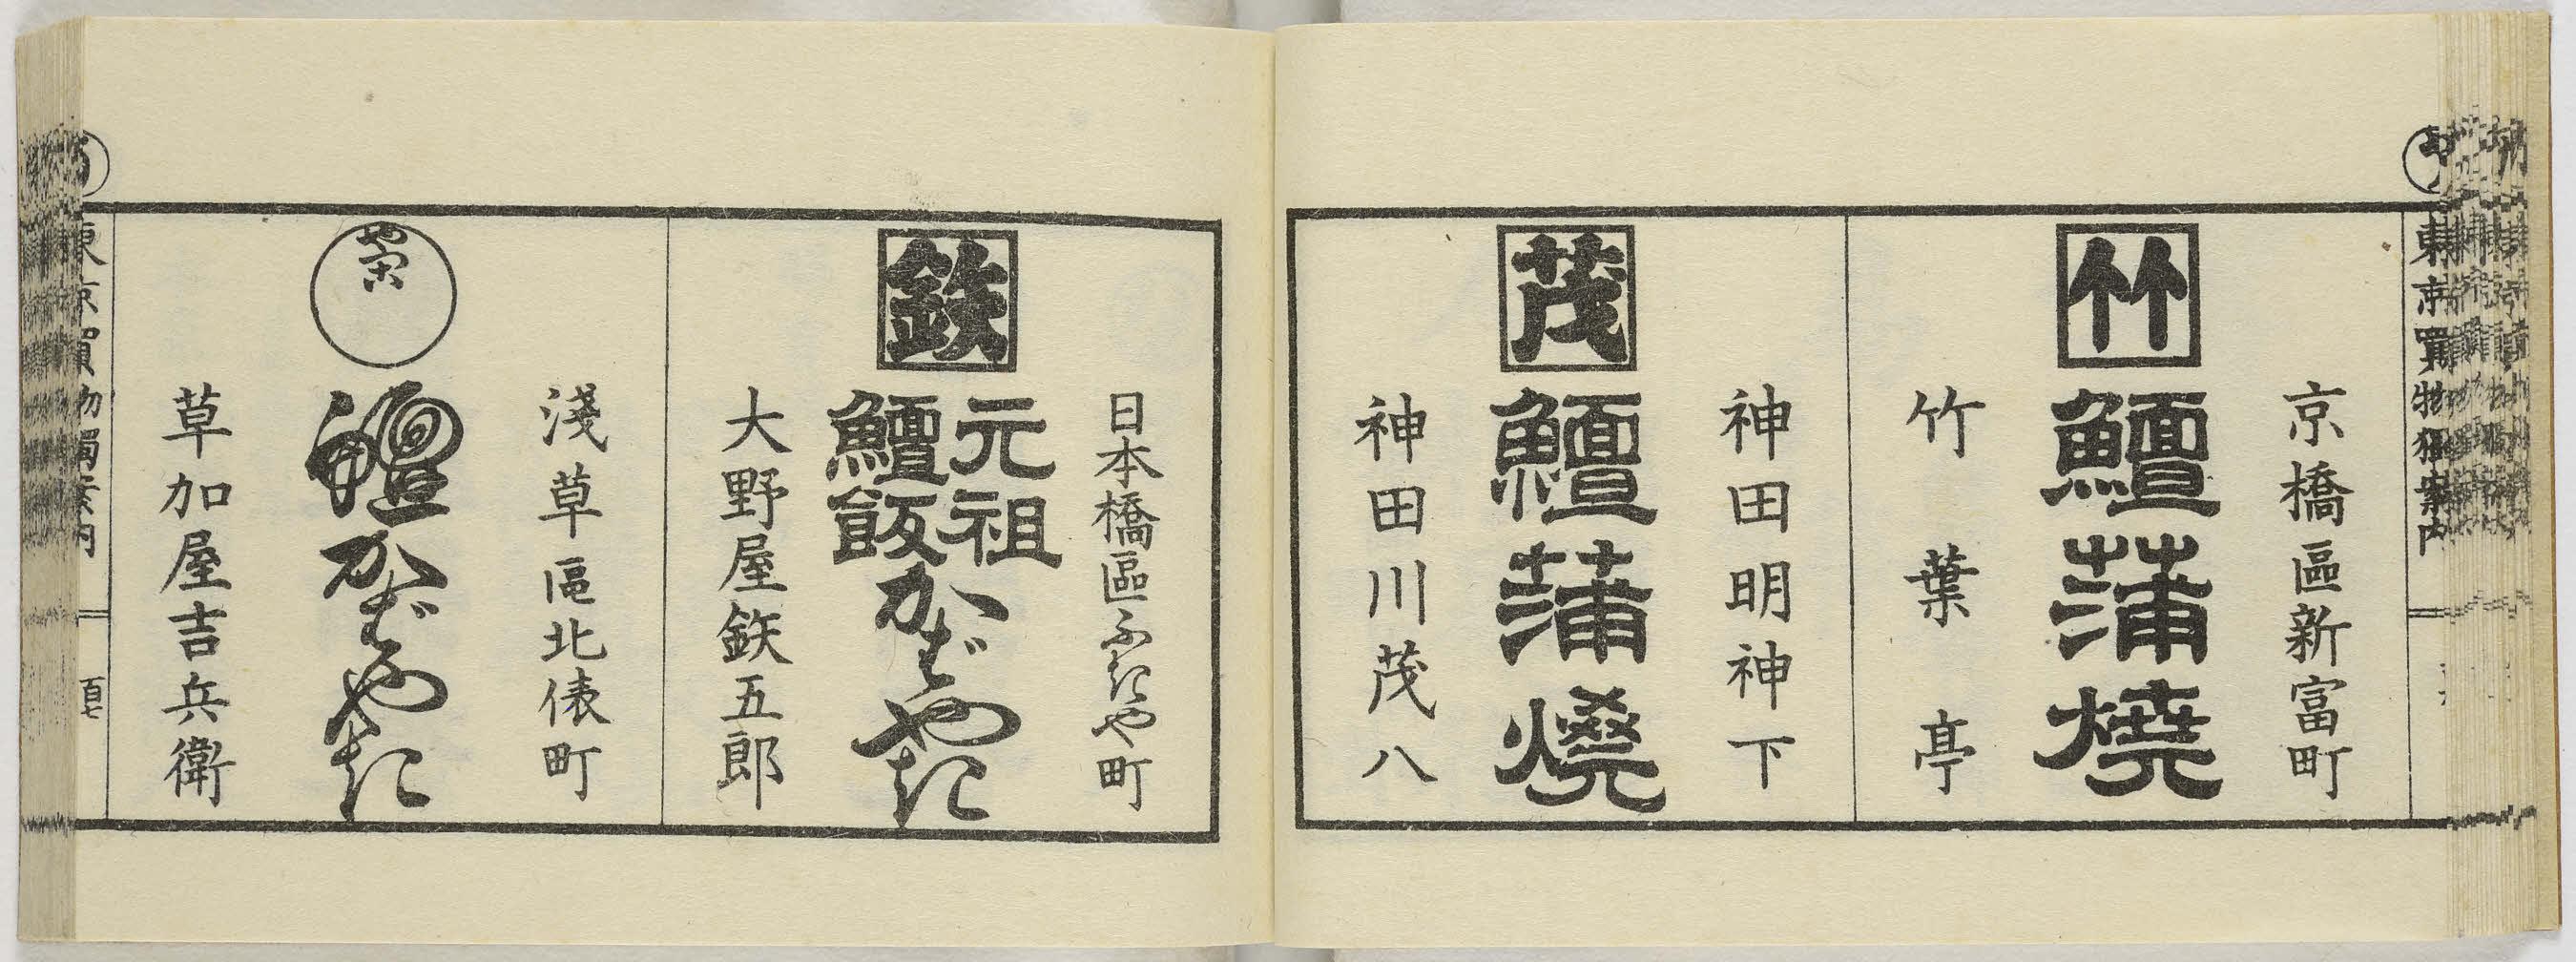 東京買物獨案内
京橋區新富町
竹
鱣蒲燒
竹葉亭
神田明神下
茂
鱣蒲燒
神田川茂八
日本橋區ふきや町
鉄
元祖
鱣飯
かばやき
大野屋鉄五郎
淺草區北俵町
鱣かばやき
草加屋吉兵衛
東京買物獨案内